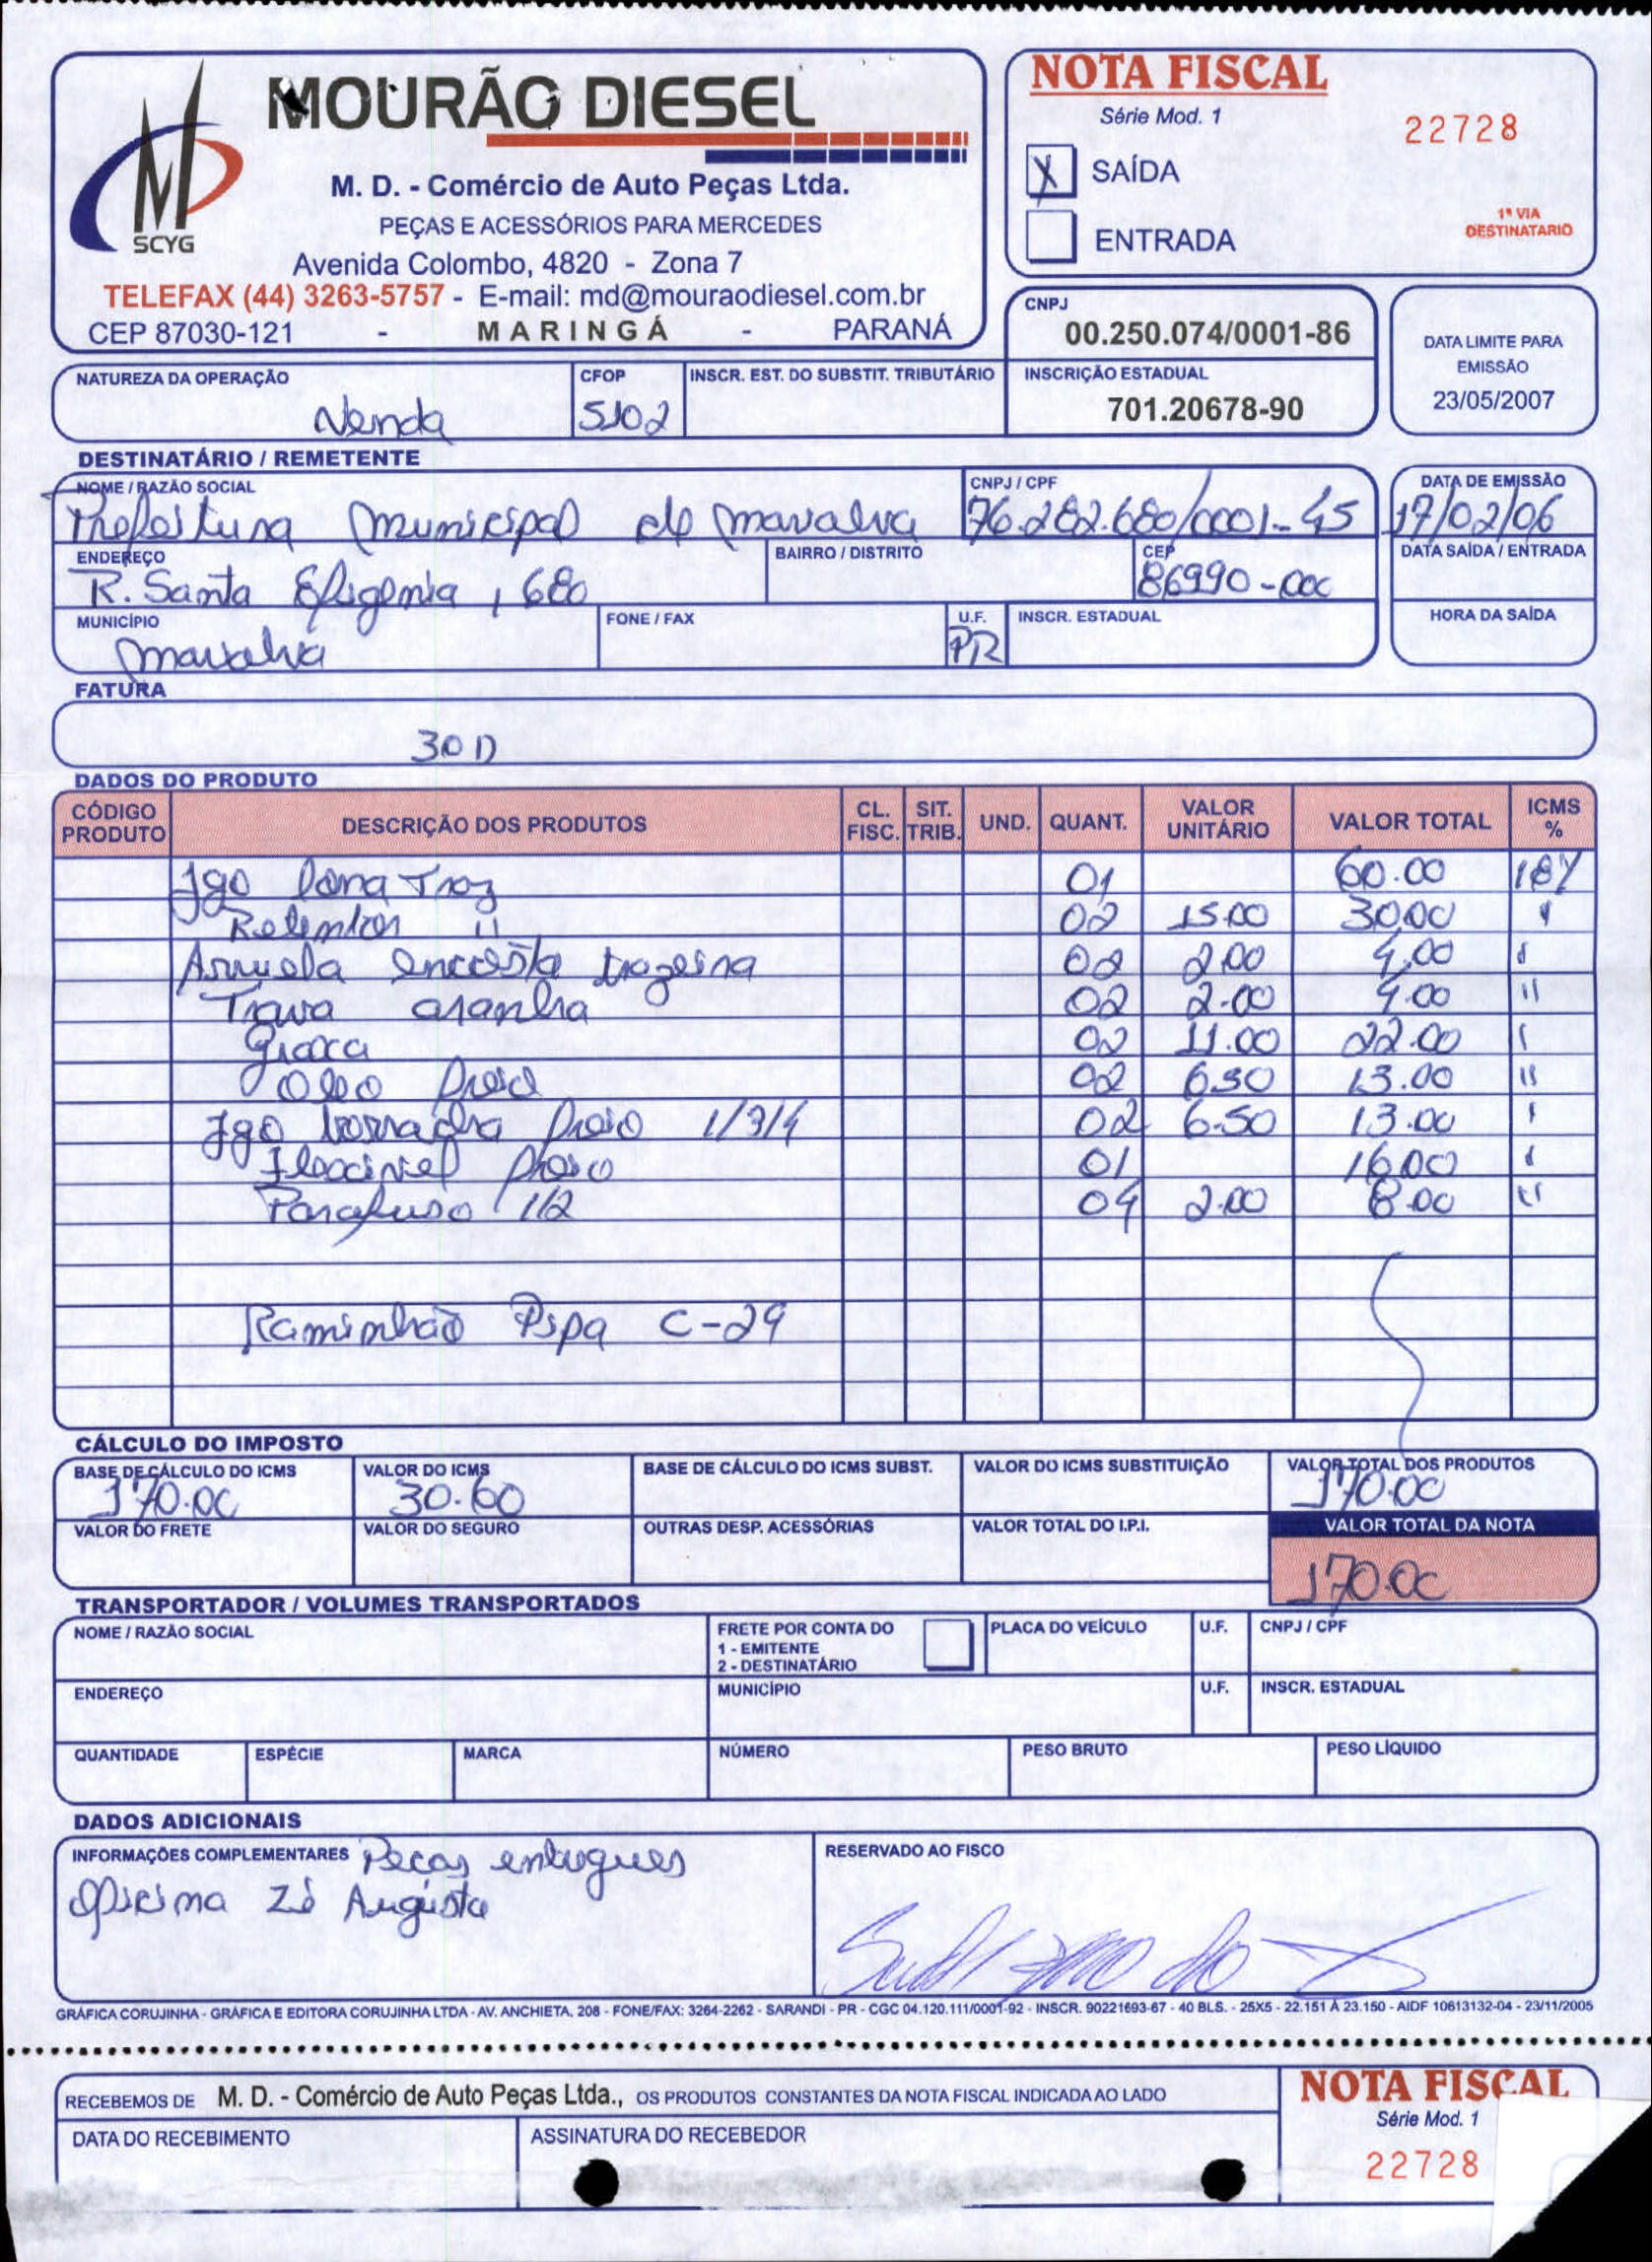 MOURÃO DIESEL
SCYG
M. D. - Comércio de Auto Peças Ltda.
PEÇAS E ACESSÓRIOS PARA MERCEDES
Avenida Colombo, 4820 - Zona 7
TELEFAX (44) 3263-5757 - E-mail: md@mouraodiesel.com.br
CEP 87030-121 - MARINGÁ - PARANÁ
NOTA FISCAL
Série Mod. 1
22728
X SAÍDA
ENTRADA
1ª VIA
DESTINATARIO
CNPJ
00.250.074/0001-86
DATA LIMITE PARA
EMISSÃO
23/05/2007
NATUREZA DA OPERAÇÃO CFOP INSCR. EST. DO SUBSTIT. TRIBUTÁRIO INSCRIÇÃO ESTADUAL
Venda 5102 701.20678-90
DESTINATÁRIO / REMETENTE
NOME / RAZÃO SOCIAL CNPJ / CPF DATA DE EMISSÃO
Prefeitura Municipal de Marialva 76.282.680/0001-45 17/02/06
ENDEREÇO BAIRRO / DISTRITO CEP DATA SAÍDA / ENTRADA
R. Santa Efigenia, 680 86990-000
MUNICÍPIO FONE / FAX U.F. INSCR. ESTADUAL HORA DA SAÍDA
Marialva PR
FATURA
30 D
DADOS DO PRODUTO
CÓDIGO PRODUTO DESCRIÇÃO DOS PRODUTOS CL. FISC. SIT. TRIB. UND. QUANT. VALOR UNITÁRIO VALOR TOTAL ICMS %
Jgo Lona Traz 01 60.00 18%
Retentor " 02 15.00 30.00 "
Arruela encosto trazeira 02 2.00 4.00 "
Trava aranha 02 2.00 4.00 "
Graxa 02 11.00 22.00 "
Oleo freio 02 6.50 13.00 "
Jgo borracha freio 1/3/4 02 6.50 13.00 "
Flexivel freio 01 16.00 "
Parafuso 1/2 04 2.00 8.00 "
Kaminhão Pipa C-29
CÁLCULO DO IMPOSTO
BASE DE CÁLCULO DO ICMS VALOR DO ICMS BASE DE CÁLCULO DO ICMS SUBST. VALOR DO ICMS SUBSTITUIÇÃO VALOR TOTAL DOS PRODUTOS
170.00 30.60 170.00
VALOR DO FRETE VALOR DO SEGURO OUTRAS DESP. ACESSÓRIAS VALOR TOTAL DO I.P.I. VALOR TOTAL DA NOTA
170.00
TRANSPORTADOR / VOLUMES TRANSPORTADOS
NOME / RAZÃO SOCIAL FRETE POR CONTA DO PLACA DO VEÍCULO U.F. CNPJ / CPF
1 - EMITENTE
2 - DESTINATÁRIO
ENDEREÇO MUNICÍPIO U.F. INSCR. ESTADUAL
QUANTIDADE ESPÉCIE MARCA NÚMERO PESO BRUTO PESO LÍQUIDO
DADOS ADICIONAIS
INFORMAÇÕES COMPLEMENTARES Pecas entregues RESERVADO AO FISCO
Oficina Zé Augusto
GRÁFICA CORUJINHA - GRÁFICA E EDITORA CORUJINHA LTDA - AV. ANCHIETA, 208 - FONE/FAX: 3264-2262 - SARANDI - PR - CGC 04.120.111/0001-92 - INSCR. 90221693-67 - 40 BLS. - 25X5 - 22.151 À 23.150 - AIDF 10613132-04 - 23/11/2005
RECEBEMOS DE M. D. - Comércio de Auto Peças Ltda., OS PRODUTOS CONSTANTES DA NOTA FISCAL INDICADA AO LADO
DATA DO RECEBIMENTO ASSINATURA DO RECEBEDOR
NOTA FISCAL
Série Mod. 1
22728